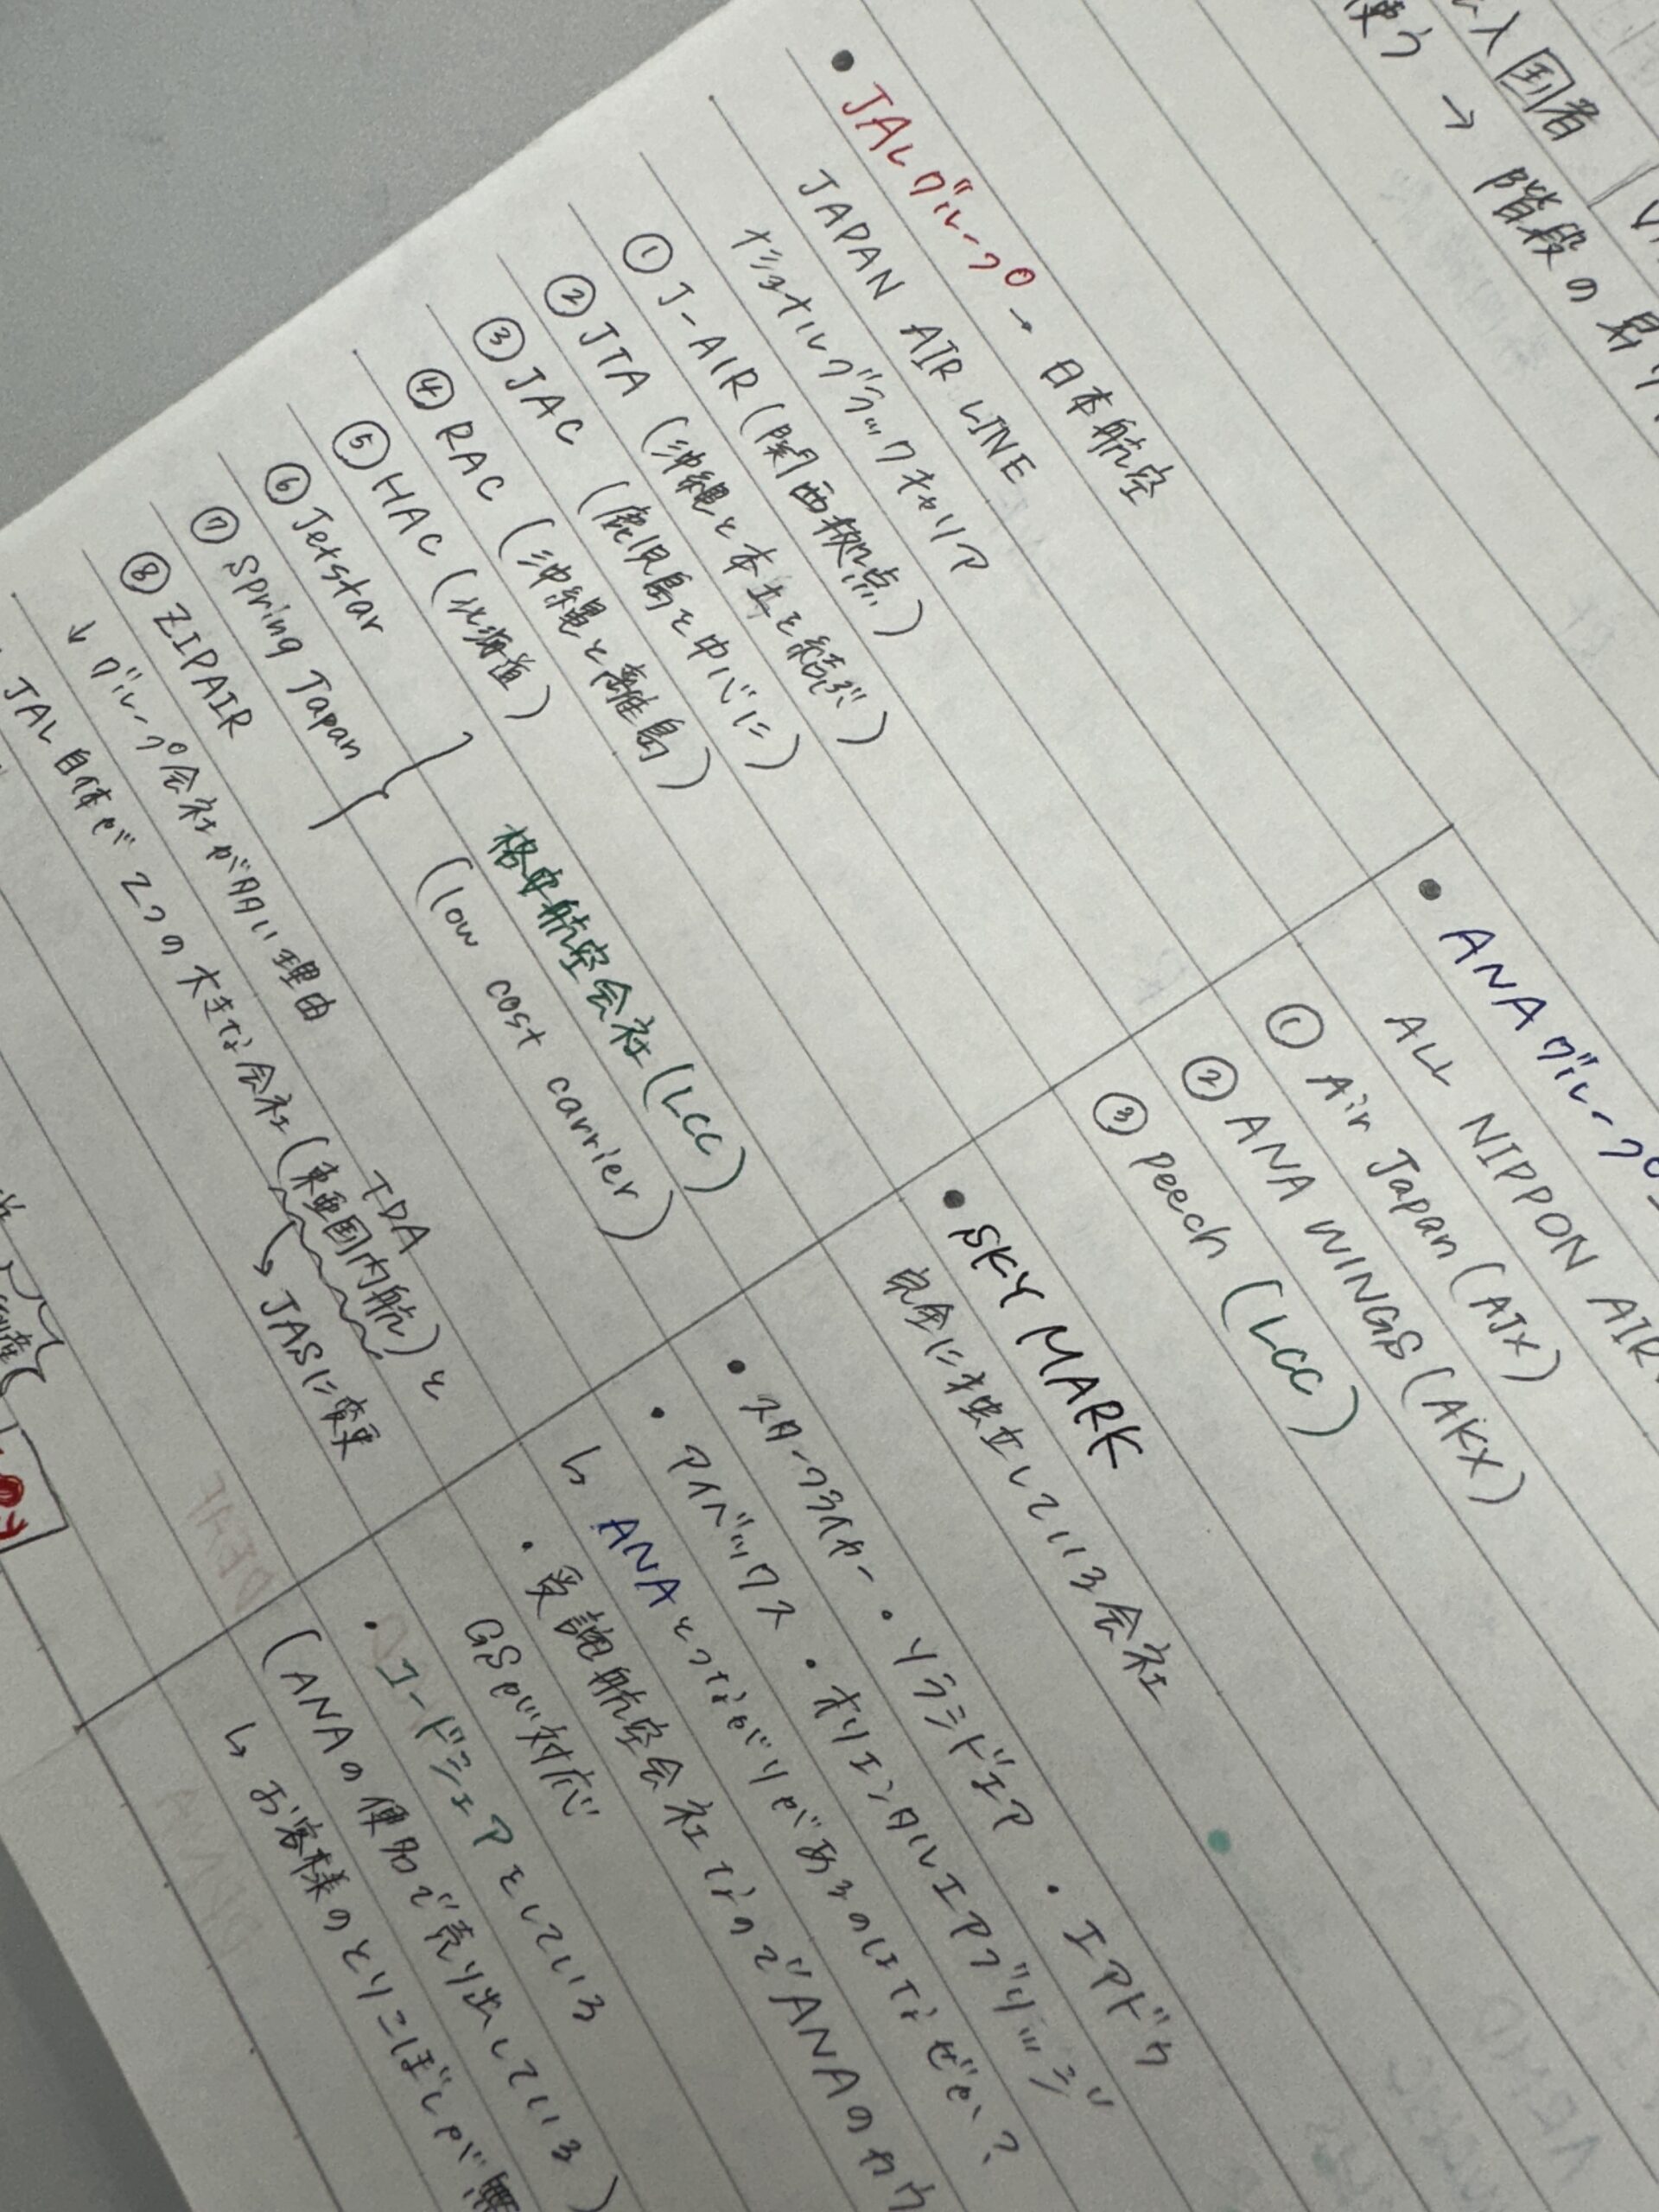 入国者
使う → 階段の昇り
• JALグループ → 日本航空
JAPAN AIR LINE
ナショナルフラッグキャリア
① J-AIR (関西拠点)
② JTA (沖縄と本土を結ぶ)
③ JAC (鹿児島を中心に)
④ RAC (沖縄と離島)
⑤ HAC (北海道)
⑥ Jetstar
⑦ Spring Japan
⑧ ZIPAIR
格安航空会社 (LCC)
(low cost carrier)
↓ グループ会社が多い理由
JAL自体が2つの大きな会社 (東亜国内航)と
TDA
→ JASに変更
• ANAグループ
ALL NIPPON AIR
① Air Japan (AJX)
② ANA WINGS (AKX)
③ peech (LCC)
• SKY MARK
完全に独立している会社
• スターフライヤー • ソラシドエア • エアドゥ
• アイベックス • オリエンタルエアブリッジ
↳ ANAとつながりがあるのはなぜか?
• 受託航空会社なのでANAのカウ
GSが対応
• コードシェアをしている
(ANAの便名で売り出している)
↳ お客様のとりこぼしが無